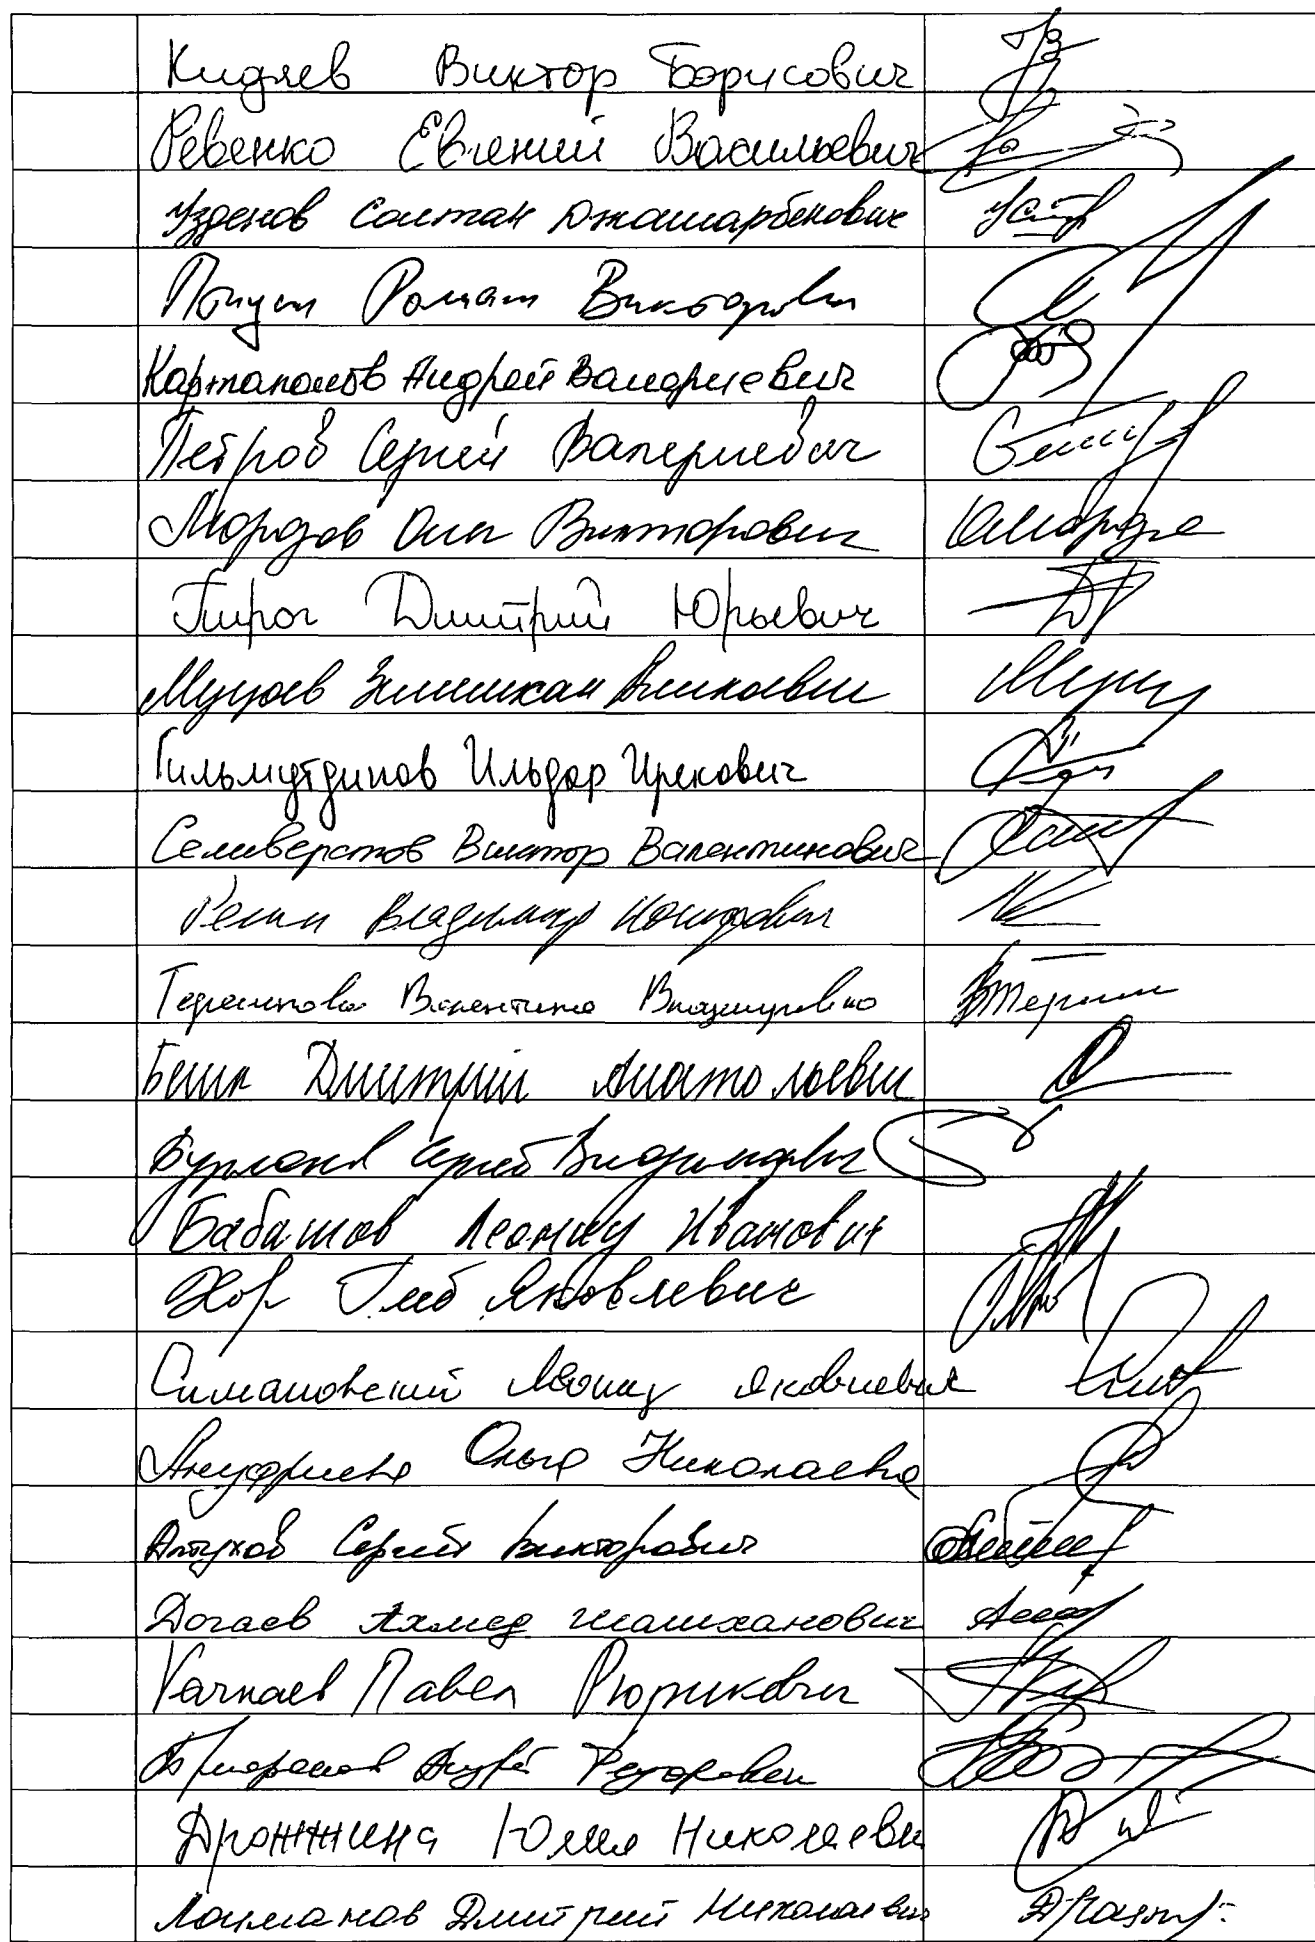 Кидяев Виктор Борисович
Ревенко Евгений Васильевич
Узденов Солтан Джашарбекович
Роман Викторович
Картаполов Андрей Валериевич
Петров Сергей Валериевич
Морозов Олег Викторович
Пирог Дмитрий Юрьевич
Муцоев Зелимхан Аликоевич
Гильмутдинов Ильдар Ирекович
Селиверстов Виктор Валентинович
Ресин Владимир Иосифович
Терешкова Валентина Владимировна
Бешк Дмитрий Анатольевич
Бурлаков Сергей Владимирович
Бабашов Леонид Иванович
Хор Глеб Яковлевич
Симановский Леонид Яковлевич
Ануфриева Ольга Николаевна
Алтухов Сергей Викторович
Догаев Ахмед Шамханович
Качкаев Павел Рюрикович
Андрей Федорович
Дрожжина Юлия Николаевн
Лоцманов Дмитрий Николаевич